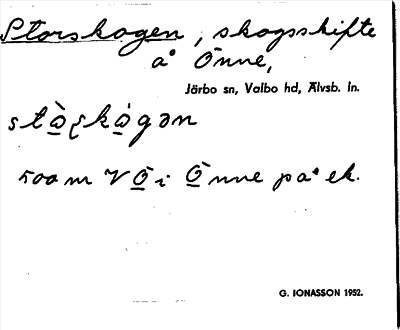 Storskogen, skogsskifte
å Önne,
Järbo sn, Valbo hd, Älvsb. ln.
500 m V Ö i Önne på ek.
G. IONASSON 1952.